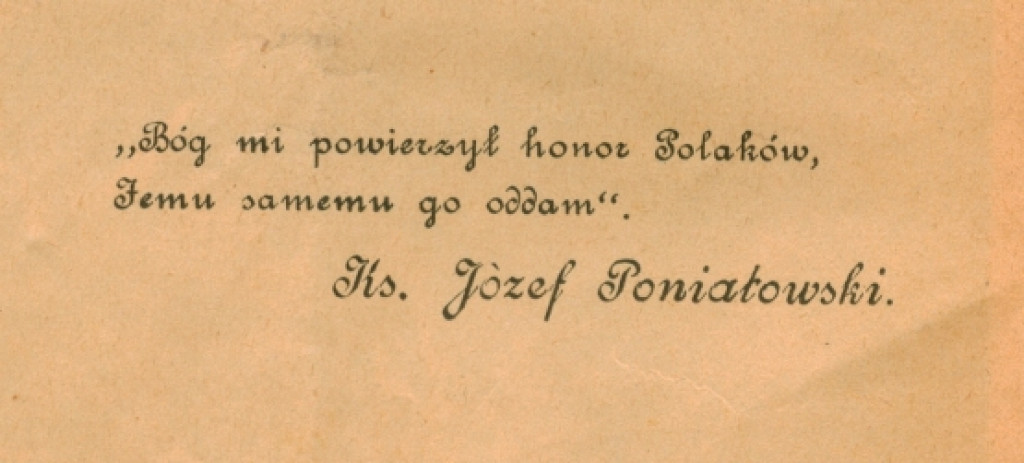 „Bóg mi powierzył honor Polaków,
Jemu samemu go oddam“.
Ks. Józef Poniatowski.